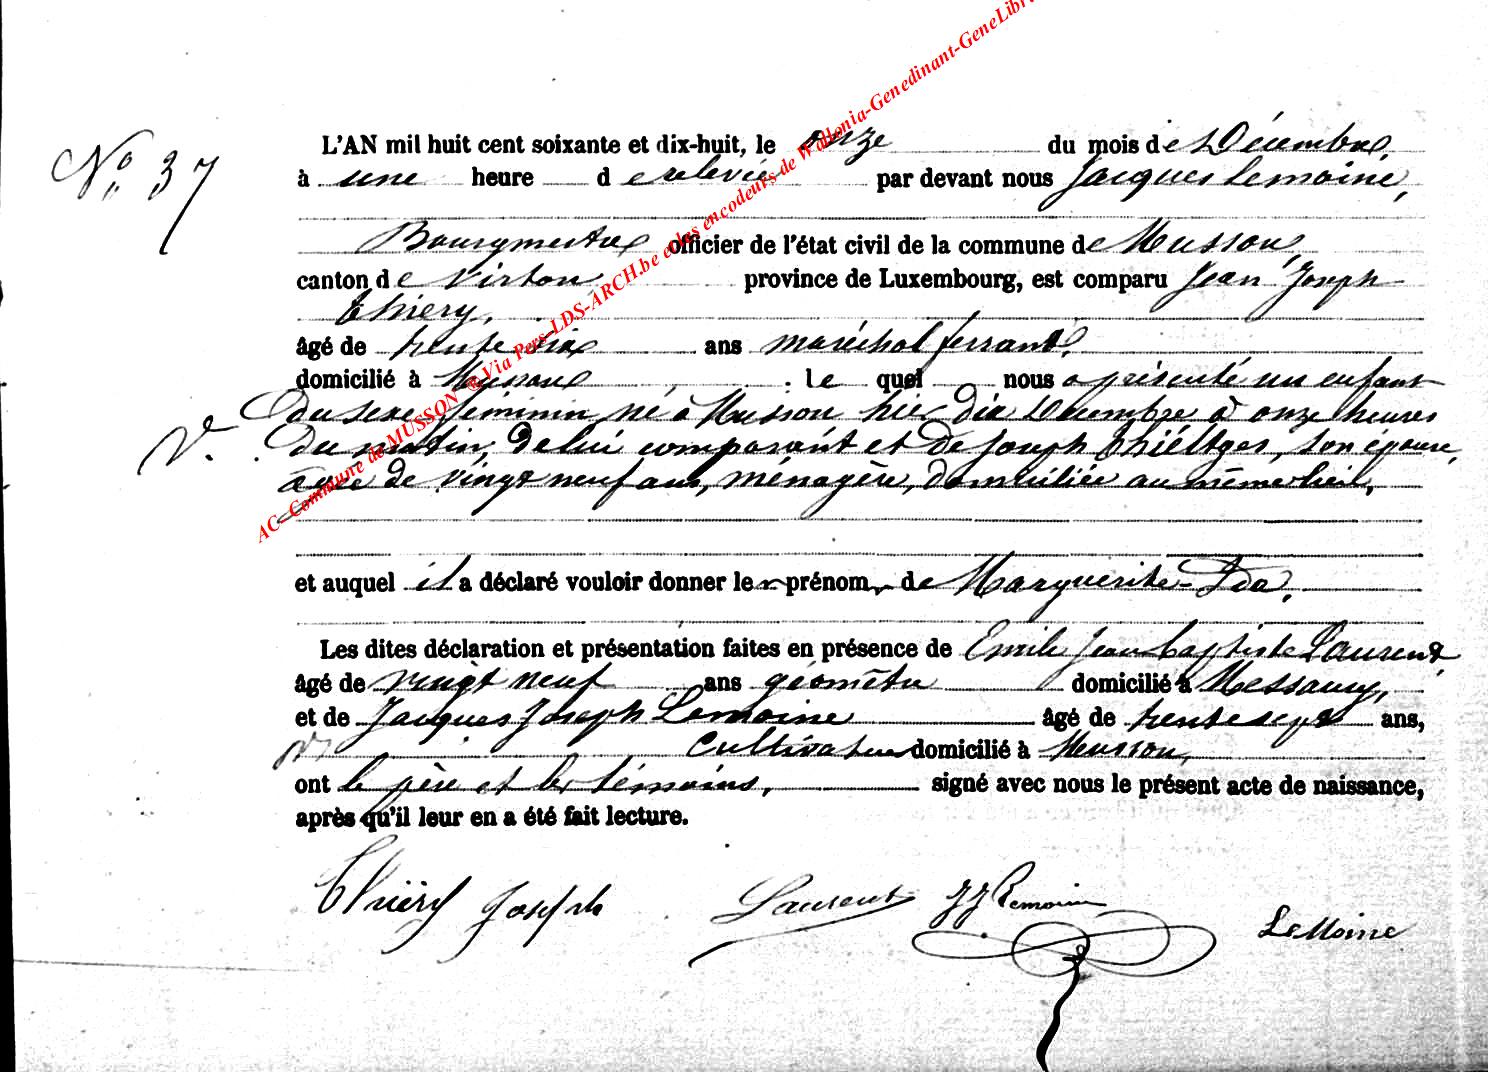 N° 37
L'AN mil huit cent soixante et dix-huit, le onze du mois de Décembre,
à une heure de relevée par devant nous Jacques Lemoine,
Bourgmestre officier de l'état civil de la commune de Musson,
canton de Virton province de Luxembourg, est comparu Jean Joseph
Thiery,
âgé de trente six ans maréchal ferrant,
domicilié à Musson : le quel nous a présenté un enfant
du sexe féminin né à Musson hier dix Décembre à onze heures
du matin, de lui comparant et de Joseph Thiéltges, son épouse,
âgée de vingt neuf ans, ménagère, domiciliée au même lieu,
et auquel il a déclaré vouloir donner le prénom de Marguerite-Ida.
Les dites déclaration et présentation faites en présence de Emile Jean Baptiste Laurent,
âgé de vingt neuf ans géomètre domicilié à Messancy,
et de Jacques Joseph Lemoine âgé de trente sept ans,
cultivateur domicilié à Musson,
ont le père et les témoins, signé avec nous le présent acte de naissance,
après qu'il leur en a été fait lecture.
Thiéry Joseph Laurent JJ Lemoine LeMoine
AC- Commune de MUSSON ® Via Pers-LDS-ARCH.be et les encodeurs de Wallonia-Genedinant-GeneLibr